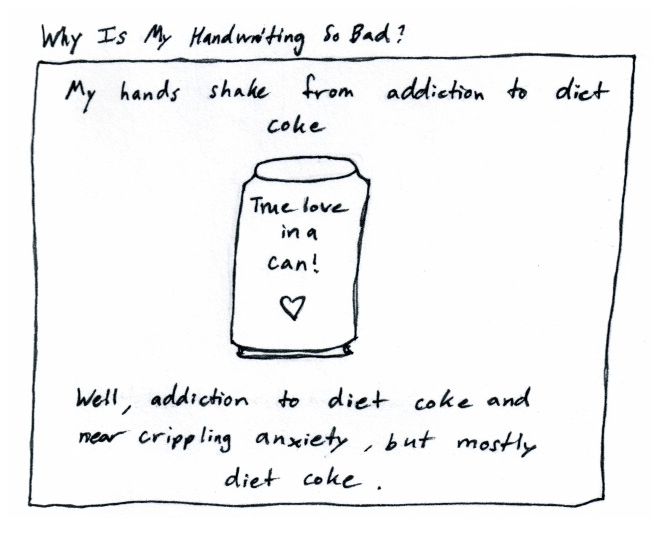 Why Is My Handwriting So Bad?
My hands shake from addiction to diet
coke
True love
in a
can!
Well, addiction to diet coke and
near crippling anxiety, but mostly
diet coke.